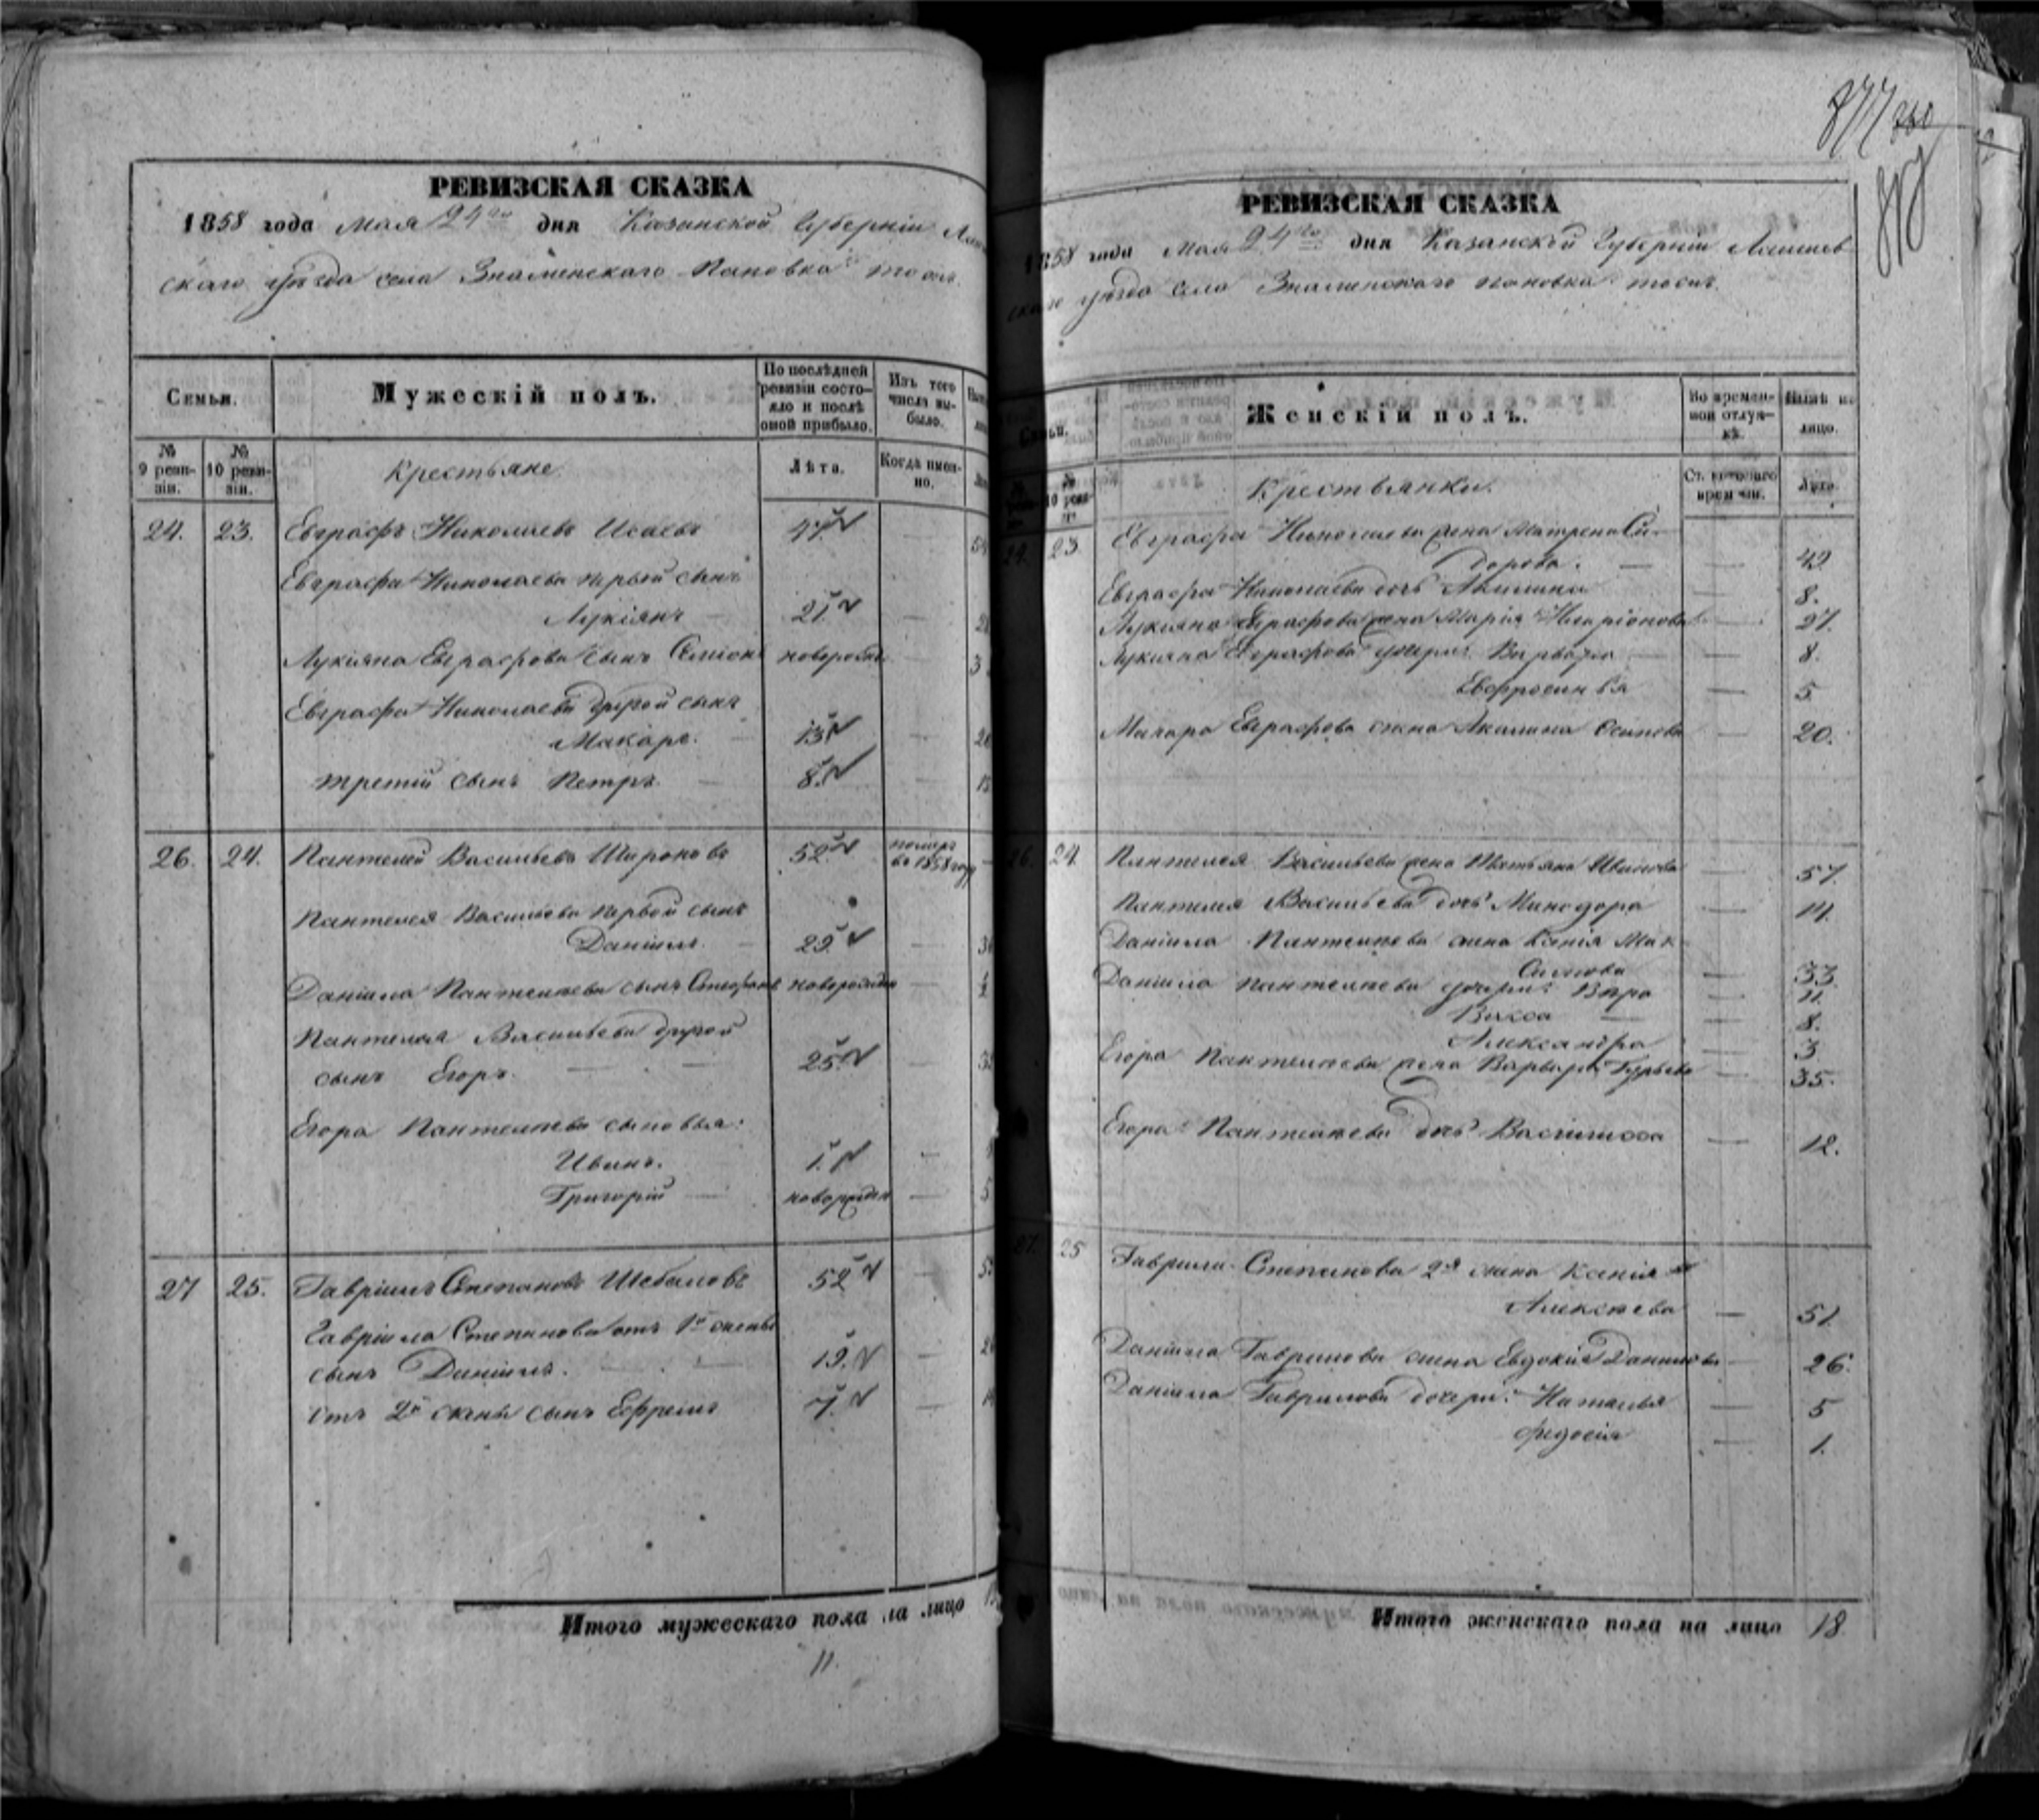 РЕВИЗСКАЯ СКАЗКА
1858 года Мая 24го дня Казанской Губерніи
скаго уѣзда села Знаменскаго Пановка тожъ.
Семьи.
Мужескій полъ.
По послѣдней ревизіи состояло и послѣ оной прибыло.
Изъ того числа выбыло.
№ 9 ревизіи.
№ 10 ревизіи.
Крестьяне.
Лѣта.
Когда именно.
24. 23. Евграфъ Николаевъ Исаевъ 47.
Евграфа Николаева первый сынъ
Лукіянъ 21.
Лукіяна Евграфова сынъ новорожд
Евграфа Николаева другой сынъ
Макаръ. 13
третій сынъ Петръ. 8.
26. 24. Пантелей Васильевъ Широковъ 52. померъ
въ 1858 году
Пантелея Васильева первой сынъ
Даніилъ.
Даніила Пантелѣева сынъ Стефанъ новорожден
Пантелея Васильева другой
сынъ Егоръ. 25.
Егора Пантелѣева сыновья:
Иванъ. 1.
Григорій новорожден
27 25. Гавріилъ Степановъ 52
Гавріила Степанова отъ 1й жены
сынъ Даніилъ. 19.
отъ 2й жены сынъ Ефремъ 7.
Итого мужескаго пола на лицо
11.
877
РЕВИЗСКАЯ СКАЗКА
1858 года Мая 24го дня Казанской Губерніи Лаишев
скаго уѣзда села Знаменскаго Пановка тожъ.
Семьи.
Женскій полъ.
Во временной отлучкѣ.
Нынѣ на лицо.
10 реви
Крестьянки.
Съ котораго времени.
Лѣта.
24. 23. Евграфа Николаева жена Матрена Си-
дорова.
Евграфа Николаева дочь Акилина 8.
Лукіяна Евграфова жена Марія Иларіонова 27.
Лукіяна Евграфова дочери: Варвара 8.
Евфросинья 5
Макара Евграфова жена Акилина Осипова 20.
26. 24. Пантелея Васильева жена Татьяна Иванова 57.
Пантелея Васильева дочь Минодора
Даніила Пантелѣева жена Ксенія Мак-
симова 33.
Даніила Пантелѣева дочери: 11.
Васса 8.
Александра 3
Егора Пантелѣева жена Варвара Гурьева 35.
Егора Пантелѣева дочь Василисса 12.
27. 25 Гаврилы Степанова 2я жена Ксенія
Алексѣева 51.
Даніила Гаврилова жена Евдокія Данилова 26.
Даніила Гаврилова дочери: Наталья 5
Федосія 1.
Итого женскаго пола на лицо 18